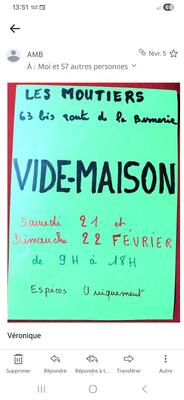 13:51
68
AMB
févr. 5
À : Moi et 57 autres personnes
LES MOUTIERS
63 bis route de la Bernerie
VIDE-MAISON
Samedi 21 et
Dimanche 22 FÉVRIER
de 9H à 18H
Espèces Uniquement
Véronique
Supprimer
Répondre
Répondre à t...
Transférer
Autre